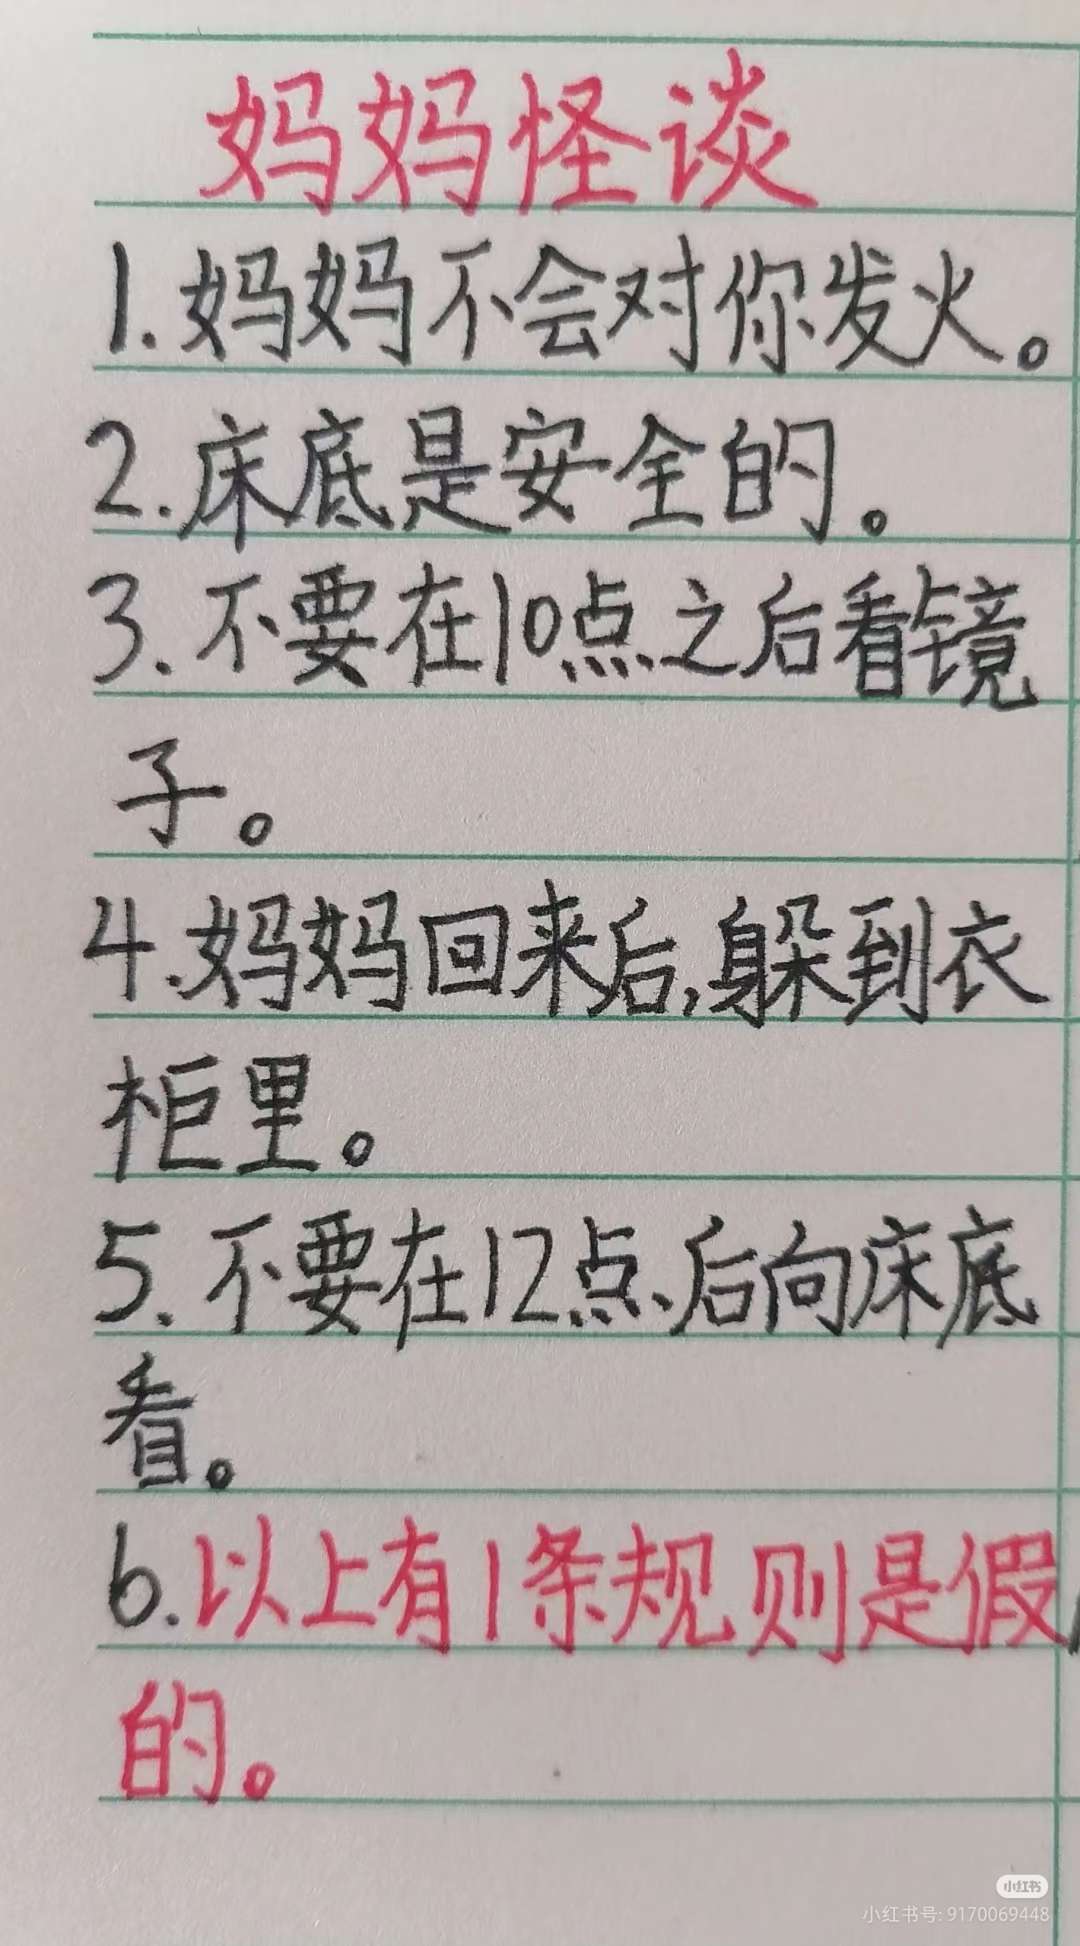 妈妈怪谈
1.妈妈不会对你发火。
2.床底是安全的。
3.不要在10点之后看镜
子。
4.妈妈回来后,躲到衣
柜里。
5.不要在12点后向床底
看。
6.以上有1条规则是假
的。
小红书
小红书号:9170069448